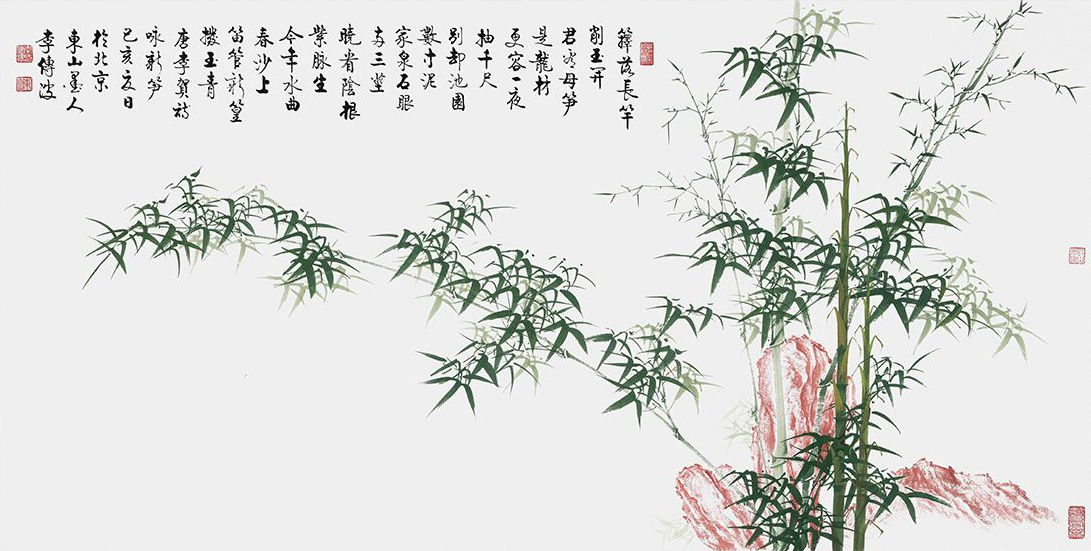 籜落長竿
削玉开
君看母笋
是龍材
更容一夜
抽千尺
别却池園
數寸泥
家泉石眼
两三莖
曉看陰根
紫脉生
今年水曲
春沙上
笛管新篁
拔玉青
唐李賀詩
咏新笋
己亥夏日
於北京
東山墨人
李傳波